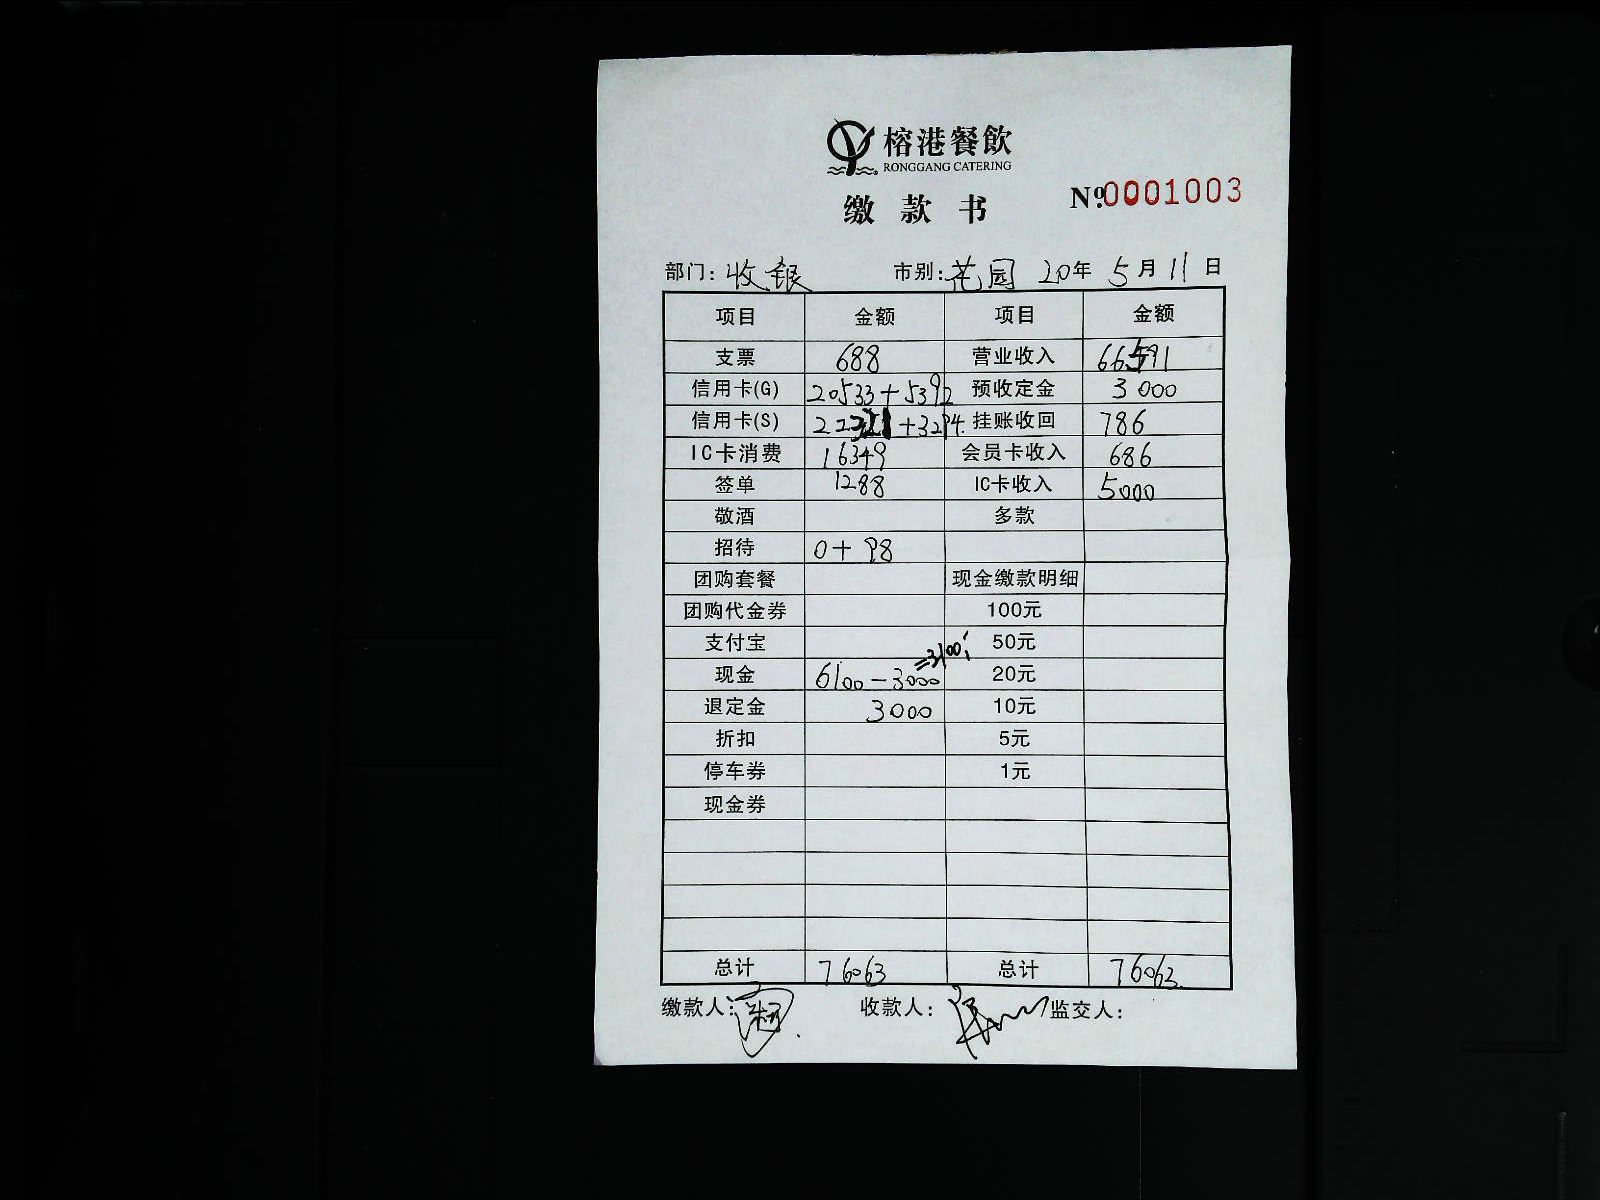 榕港餐飲
RONGGANG CATERING
缴款书 Nº.0001003
部门: 收银 市别: 花园 20年 5月 11日
项目 金额 项目 金额
支票 688 营业收入 66591
信用卡(G) 20533+5392 预收定金 3000
信用卡(S) +3294 挂账收回 786
IC卡消费 16349 会员卡收入 686
签单 1288 IC卡收入 5000
敬酒 多款
招待 0+98
团购套餐 现金缴款明细
团购代金券 100元
支付宝 50元
现金 6100-3000=3100 20元
退定金 3000 10元
折扣 5元
停车券 1元
现金券
总计 76063 总计 76063
缴款人: 收款人: 监交人: